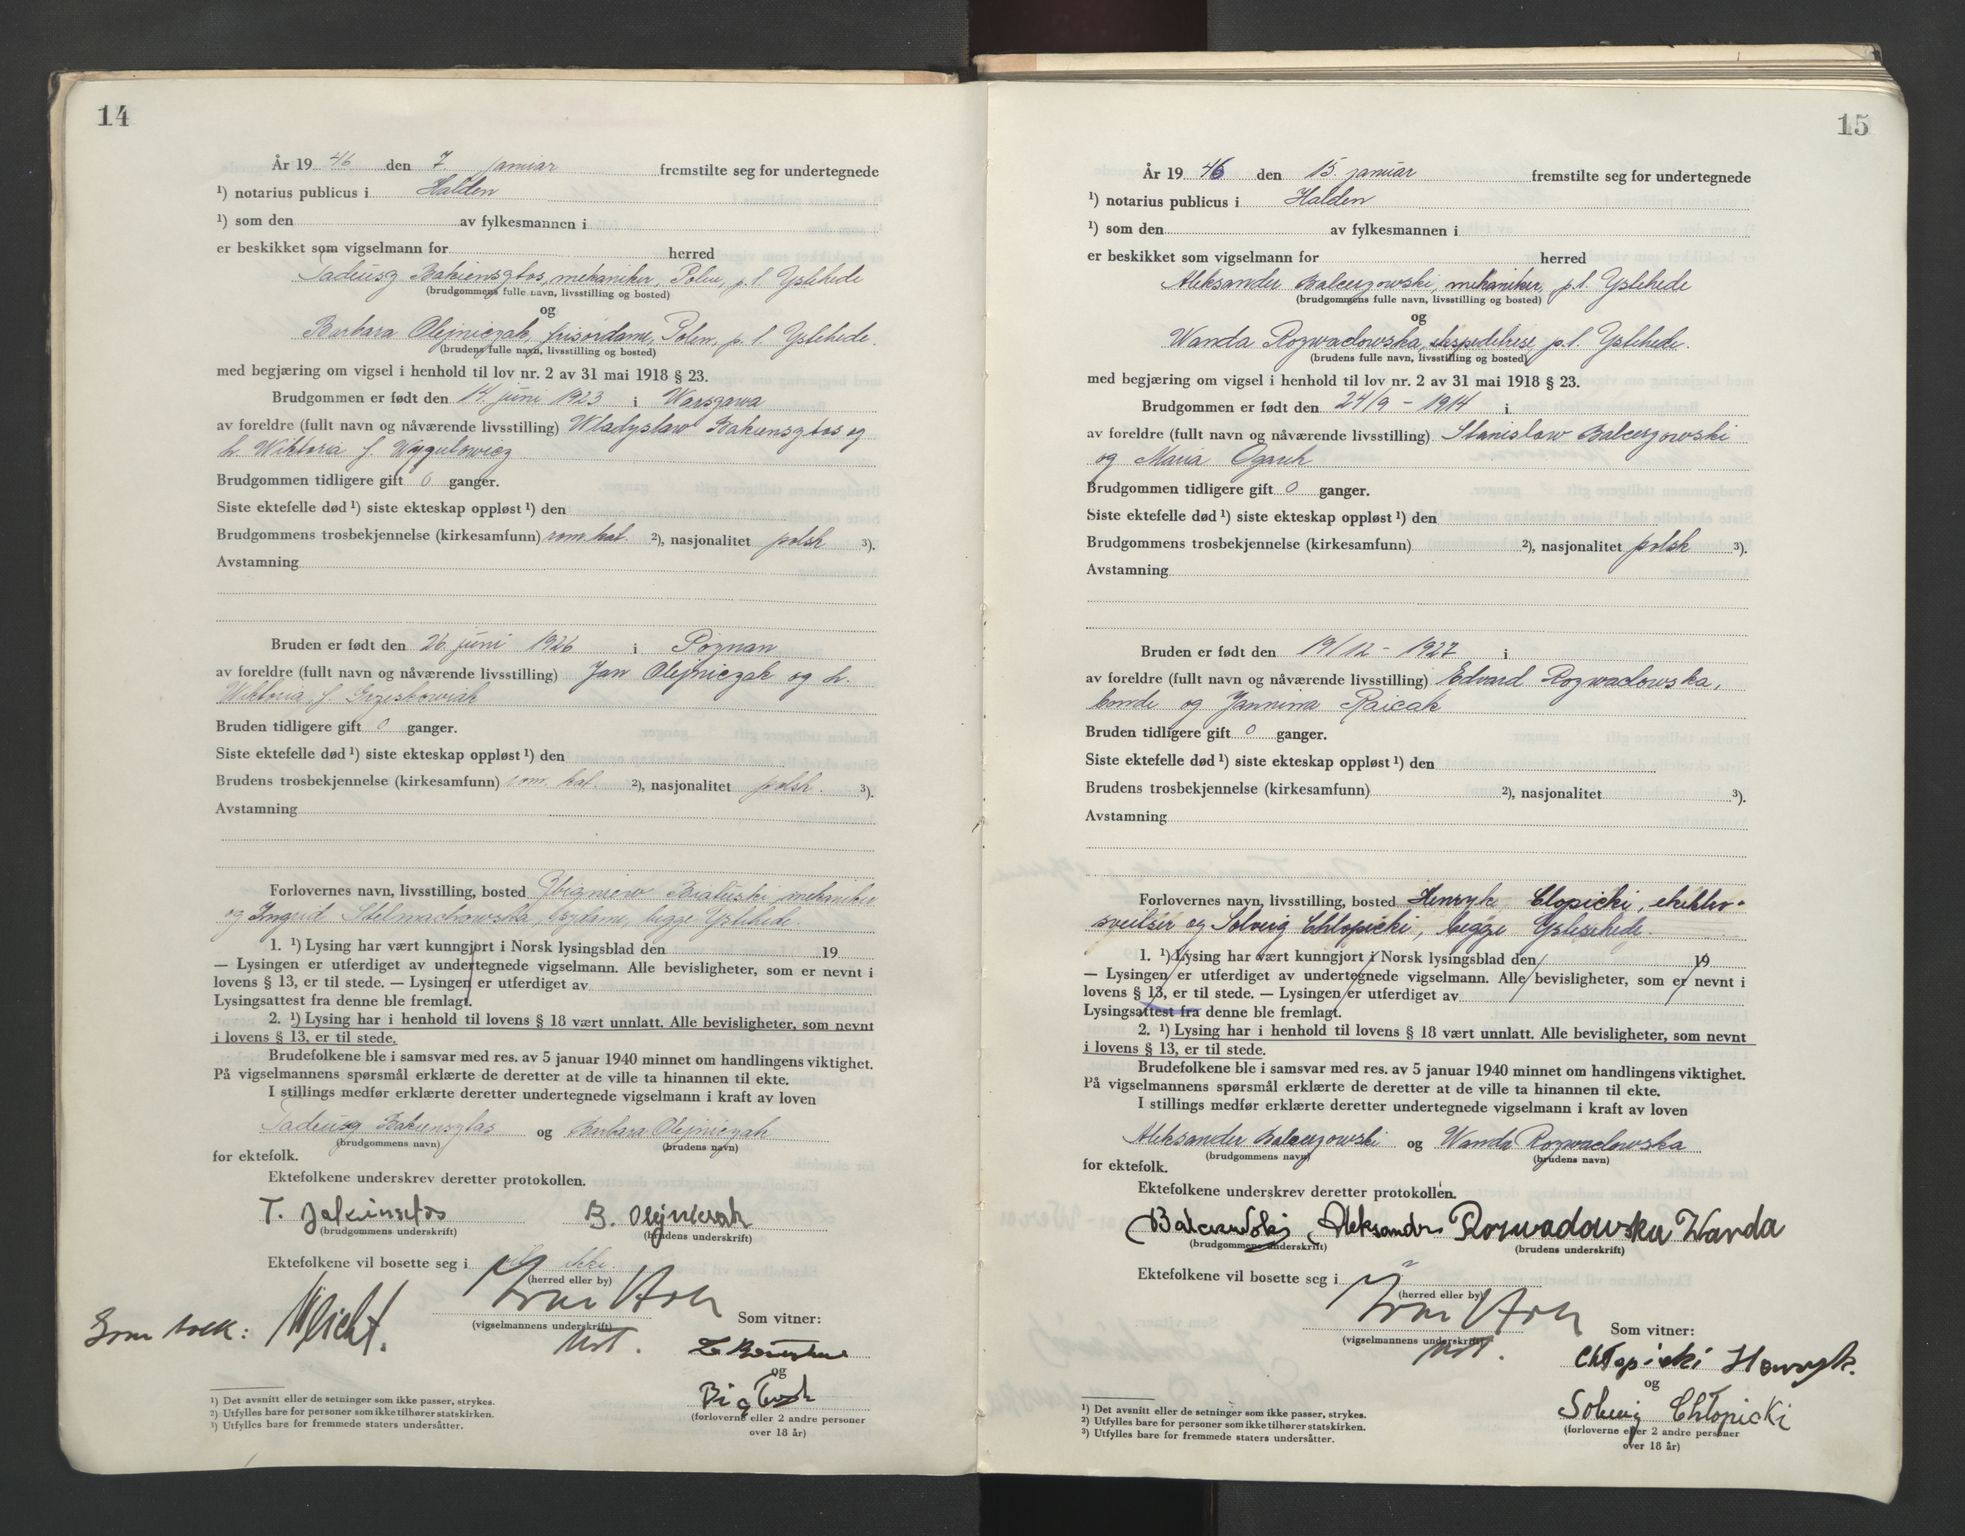 14
År 19 46 den 7. januar fremstilte seg for undertegnede
¹) notarius publicus i Halden
¹) som den av fylkesmannen i
er beskikket som vigselmann for herred
Tadeusz Bakiensztos, mekaniker, Polen, p.t. Ystehede
(brudgommens fulle navn, livsstilling og bosted)
og
Barbara Olejniczak, frisørdame, Polen, p.t. Ystehede.
(brudens fulle navn, livsstilling og bosted)
med begjæring om vigsel i henhold til lov nr. 2 av 31 mai 1918 § 23.
Brudgommen er født den 14. juni 1923 i Warszawa
av foreldre (fullt navn og nåværende livsstilling) Wladyslaw Bakiensztos og
h. Wiktoria f. Wygulowicz
Brudgommen tidligere gift 0 ganger.
Siste ektefelle død ¹) siste ekteskap oppløst ¹) den
Brudgommens trosbekjennelse (kirkesamfunn) rom. kat. ²), nasjonalitet polsk ³).
Avstamning
Bruden er født den 26. juni 1926 i Poznan
av foreldre (fullt navn og nåværende livsstilling) Jan Olejniczak og h.
Wiktoria, f. Grzeskowiak
Bruden tidligere gift 0 ganger.
Siste ektefelle død ¹) siste ekteskap oppløst ¹) den
Brudens trosbekjennelse (kirkesamfunn) rom. kat. ²), nasjonalitet polsk. ³).
Avstamning
Forlovernes navn, livsstilling, bosted Zbigniew mekaniker
og Ingrid Stelmachowska, begge Ystehede.
1. ¹) Lysing har vært kunngjort i Norsk lysingsblad den 19
— Lysingen er utferdiget av undertegnede vigselmann. Alle bevisligheter, som er nevnt i
lovens § 13, er til stede. — Lysingen er utferdiget av
Lysingsattest fra denne ble fremlagt.
2. ¹) Lysing har i henhold til lovens § 18 vært unnlatt. Alle bevisligheter, som nevnt
i lovens § 13, er til stede.
Brudefolkene ble i samsvar med res. av 5 januar 1940 minnet om handlingens viktighet.
På vigselmannens spørsmål erklærte de deretter at de ville ta hinannen til ekte.
I stillings medfør erklærte deretter undertegnede vigselmann i kraft av loven
Tadeusz Bakiensztos og Barbara Olejniczak
(brudgommens navn) (brudens navn)
for ektefolk.
Ektefolkene underskrev deretter protokollen.
T. B. Olejniczak
(brudgommens underskrift) (brudens underskrift)
Ektefolkene vil bosette seg i ikke.
(herred eller by)
Som tolk:
(vigselmannens underskrift) Som vitner:
og
(forloverne eller 2 andre personer
over 18 år)
¹) Det avsnitt eller de setninger som ikke passer, strykes.
²) Utfylles bare for personer som ikke tilhører statskirken.
³) Utfylles bare for fremmede staters undersåtter.
15
År 19 46 den 15. januar fremstilte seg for undertegnede
¹) notarius publicus i Halden
¹) som den av fylkesmannen i
er beskikket som vigselmann for herred
Aleksander Balcerzowski, mekaniker, p.t. Ystehede
(brudgommens fulle navn, livsstilling og bosted)
og
Wanda Rozwadowska, ekspeditrise, p.t. Ystehede.
(brudens fulle navn, livsstilling og bosted)
med begjæring om vigsel i henhold til lov nr. 2 av 31 mai 1918 § 23.
Brudgommen er født den 24/9 - 1914 i
av foreldre (fullt navn og nåværende livsstilling) Stanislaw Balcerzowski
og Maria Ogarek
Brudgommen tidligere gift 0 ganger.
Siste ektefelle død ¹) siste ekteskap oppløst ¹) den
Brudgommens trosbekjennelse (kirkesamfunn) ²), nasjonalitet polsk ³).
Avstamning
Bruden er født den 19/12 - 1927 i
av foreldre (fullt navn og nåværende livsstilling) Edvard Rozwadowska,
bonde og Jannina Raicak
Bruden tidligere gift 0 ganger.
Siste ektefelle død ¹) siste ekteskap oppløst ¹) den
Brudens trosbekjennelse (kirkesamfunn) ²), nasjonalitet ³).
Avstamning
Forlovernes navn, livsstilling, bosted Henryk Clopicki, elektro-
sveiser og Solveig Chlopicki, begge Ystehede.
1. ¹) Lysing har vært kunngjort i Norsk lysingsblad den 19
— Lysingen er utferdiget av undertegnede vigselmann. Alle bevisligheter, som er nevnt i
lovens § 13, er til stede. — Lysingen er utferdiget av
Lysingsattest fra denne ble fremlagt.
2. ¹) Lysing har i henhold til lovens § 18 vært unnlatt. Alle bevisligheter, som nevnt
i lovens § 13, er til stede.
Brudefolkene ble i samsvar med res. av 5 januar 1940 minnet om handlingens viktighet.
På vigselmannens spørsmål erklærte de deretter at de ville ta hinannen til ekte.
I stillings medfør erklærte deretter undertegnede vigselmann i kraft av loven
Aleksander Balcerzowski og Wanda Rozwadowska
(brudgommens navn) (brudens navn)
for ektefolk.
Ektefolkene underskrev deretter protokollen.
Aleksander Rozwadowska Wanda
(brudgommens underskrift) (brudens underskrift)
Ektefolkene vil bosette seg i "
(herred eller by)
(vigselmannens underskrift) Som vitner:
Chłopicki Henryk.
og
Solveig Chłopicki
(forloverne eller 2 andre personer
over 18 år)
¹) Det avsnitt eller de setninger som ikke passer, strykes.
²) Utfylles bare for personer som ikke tilhører statskirken.
³) Utfylles bare for fremmede staters undersåtter.